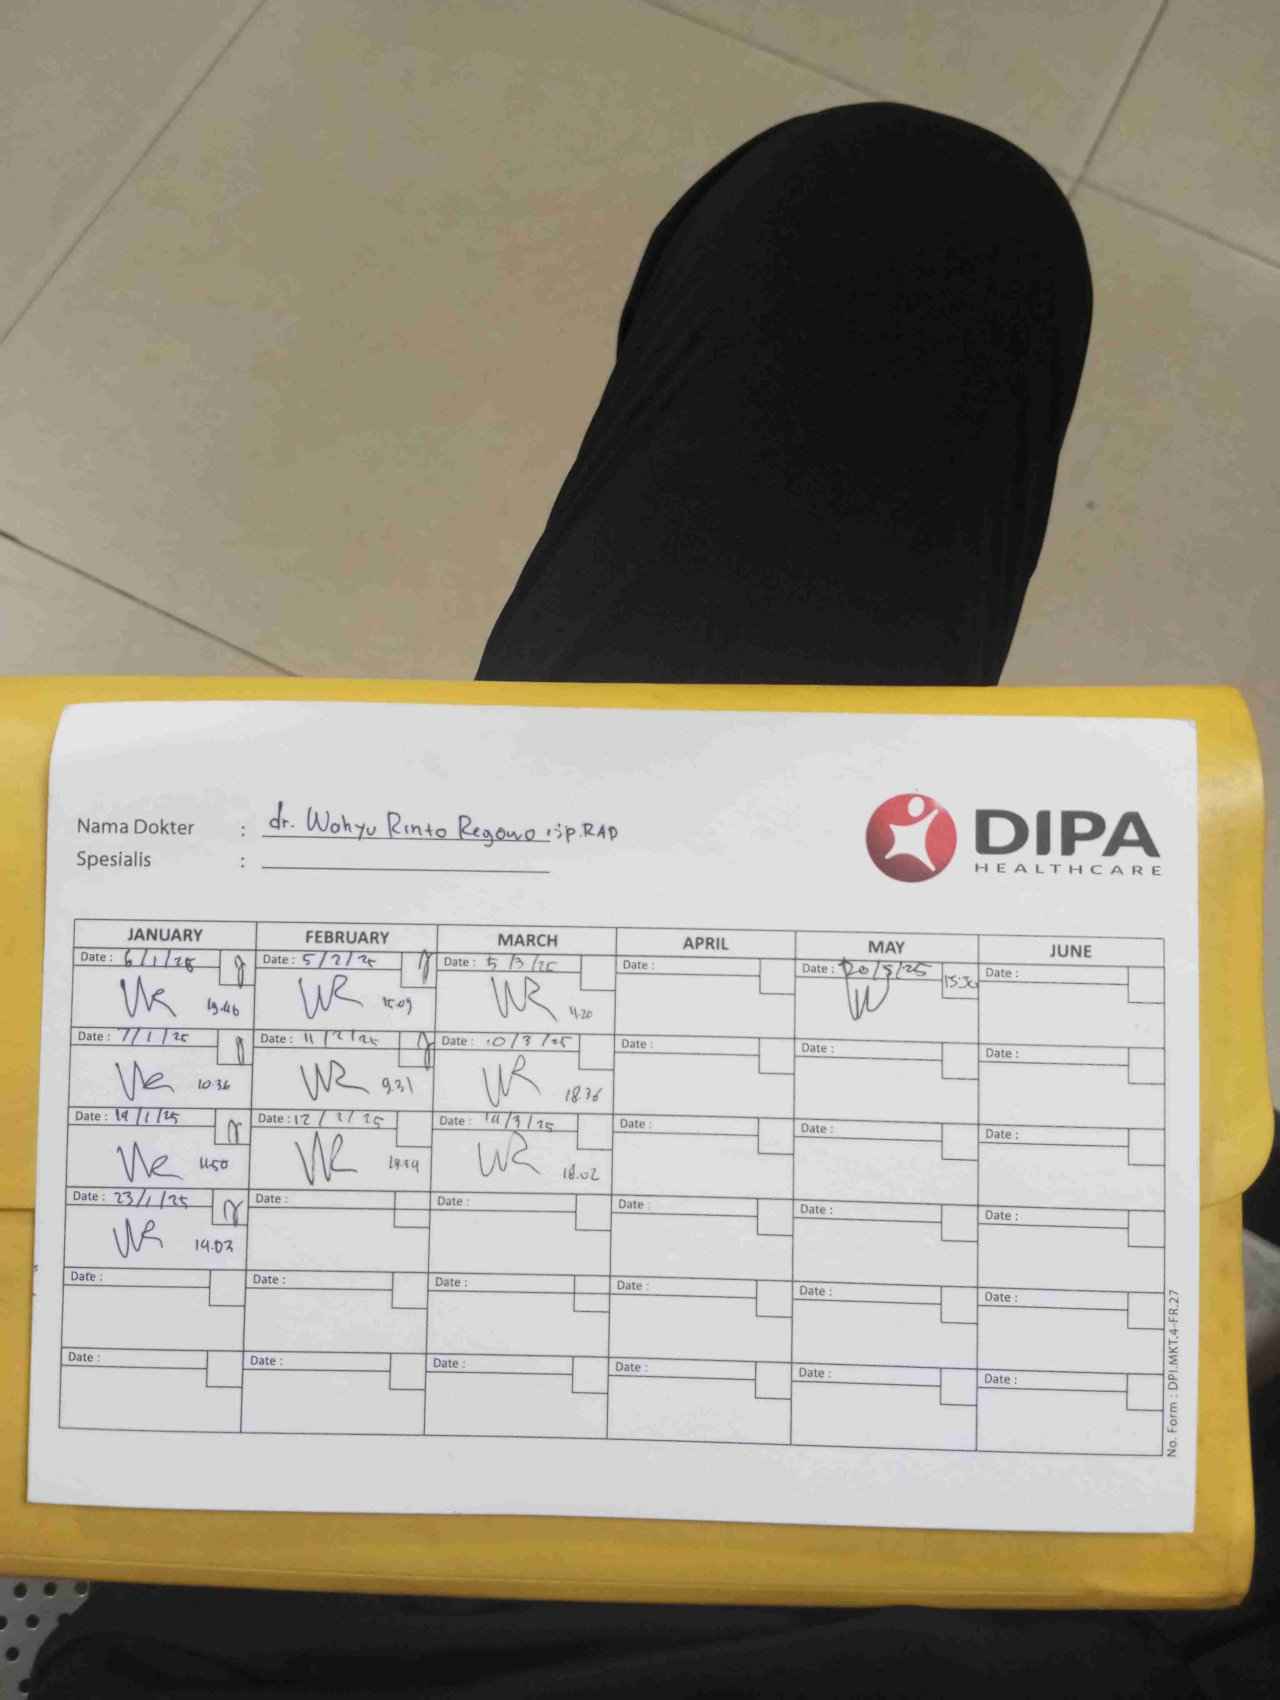 Nama Dokter : dr. Wahyu Rinto Regowo .sp.RAD
Spesialis :
DIPA
HEALTHCARE
JANUARY FEBRUARY MARCH APRIL MAY JUNE
Date : 6/1/25 Date : 5/2/25 Date : 5/3/25 Date : Date : 20/5/25 15:30 Date :
19.46 15.09 11.20
Date : 7/1/25 Date : 11/2/25 Date : 10/3/25 Date : Date : Date :
10.36 9.31 18.36
Date : 14/1/25 Date : 12/2/25 Date : 14/3/25 Date : Date : Date :
11.50 18.02
Date : 23/1/25 Date : Date : Date : Date : Date :
14.02
Date : Date : Date : Date : Date : Date :
Date : Date : Date : Date : Date : Date :
No. Form : DPI.MKT.4-FR.27